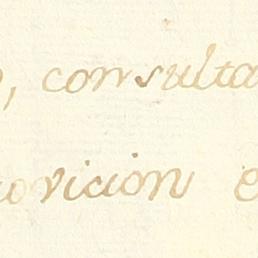 , consulta
ovicion e